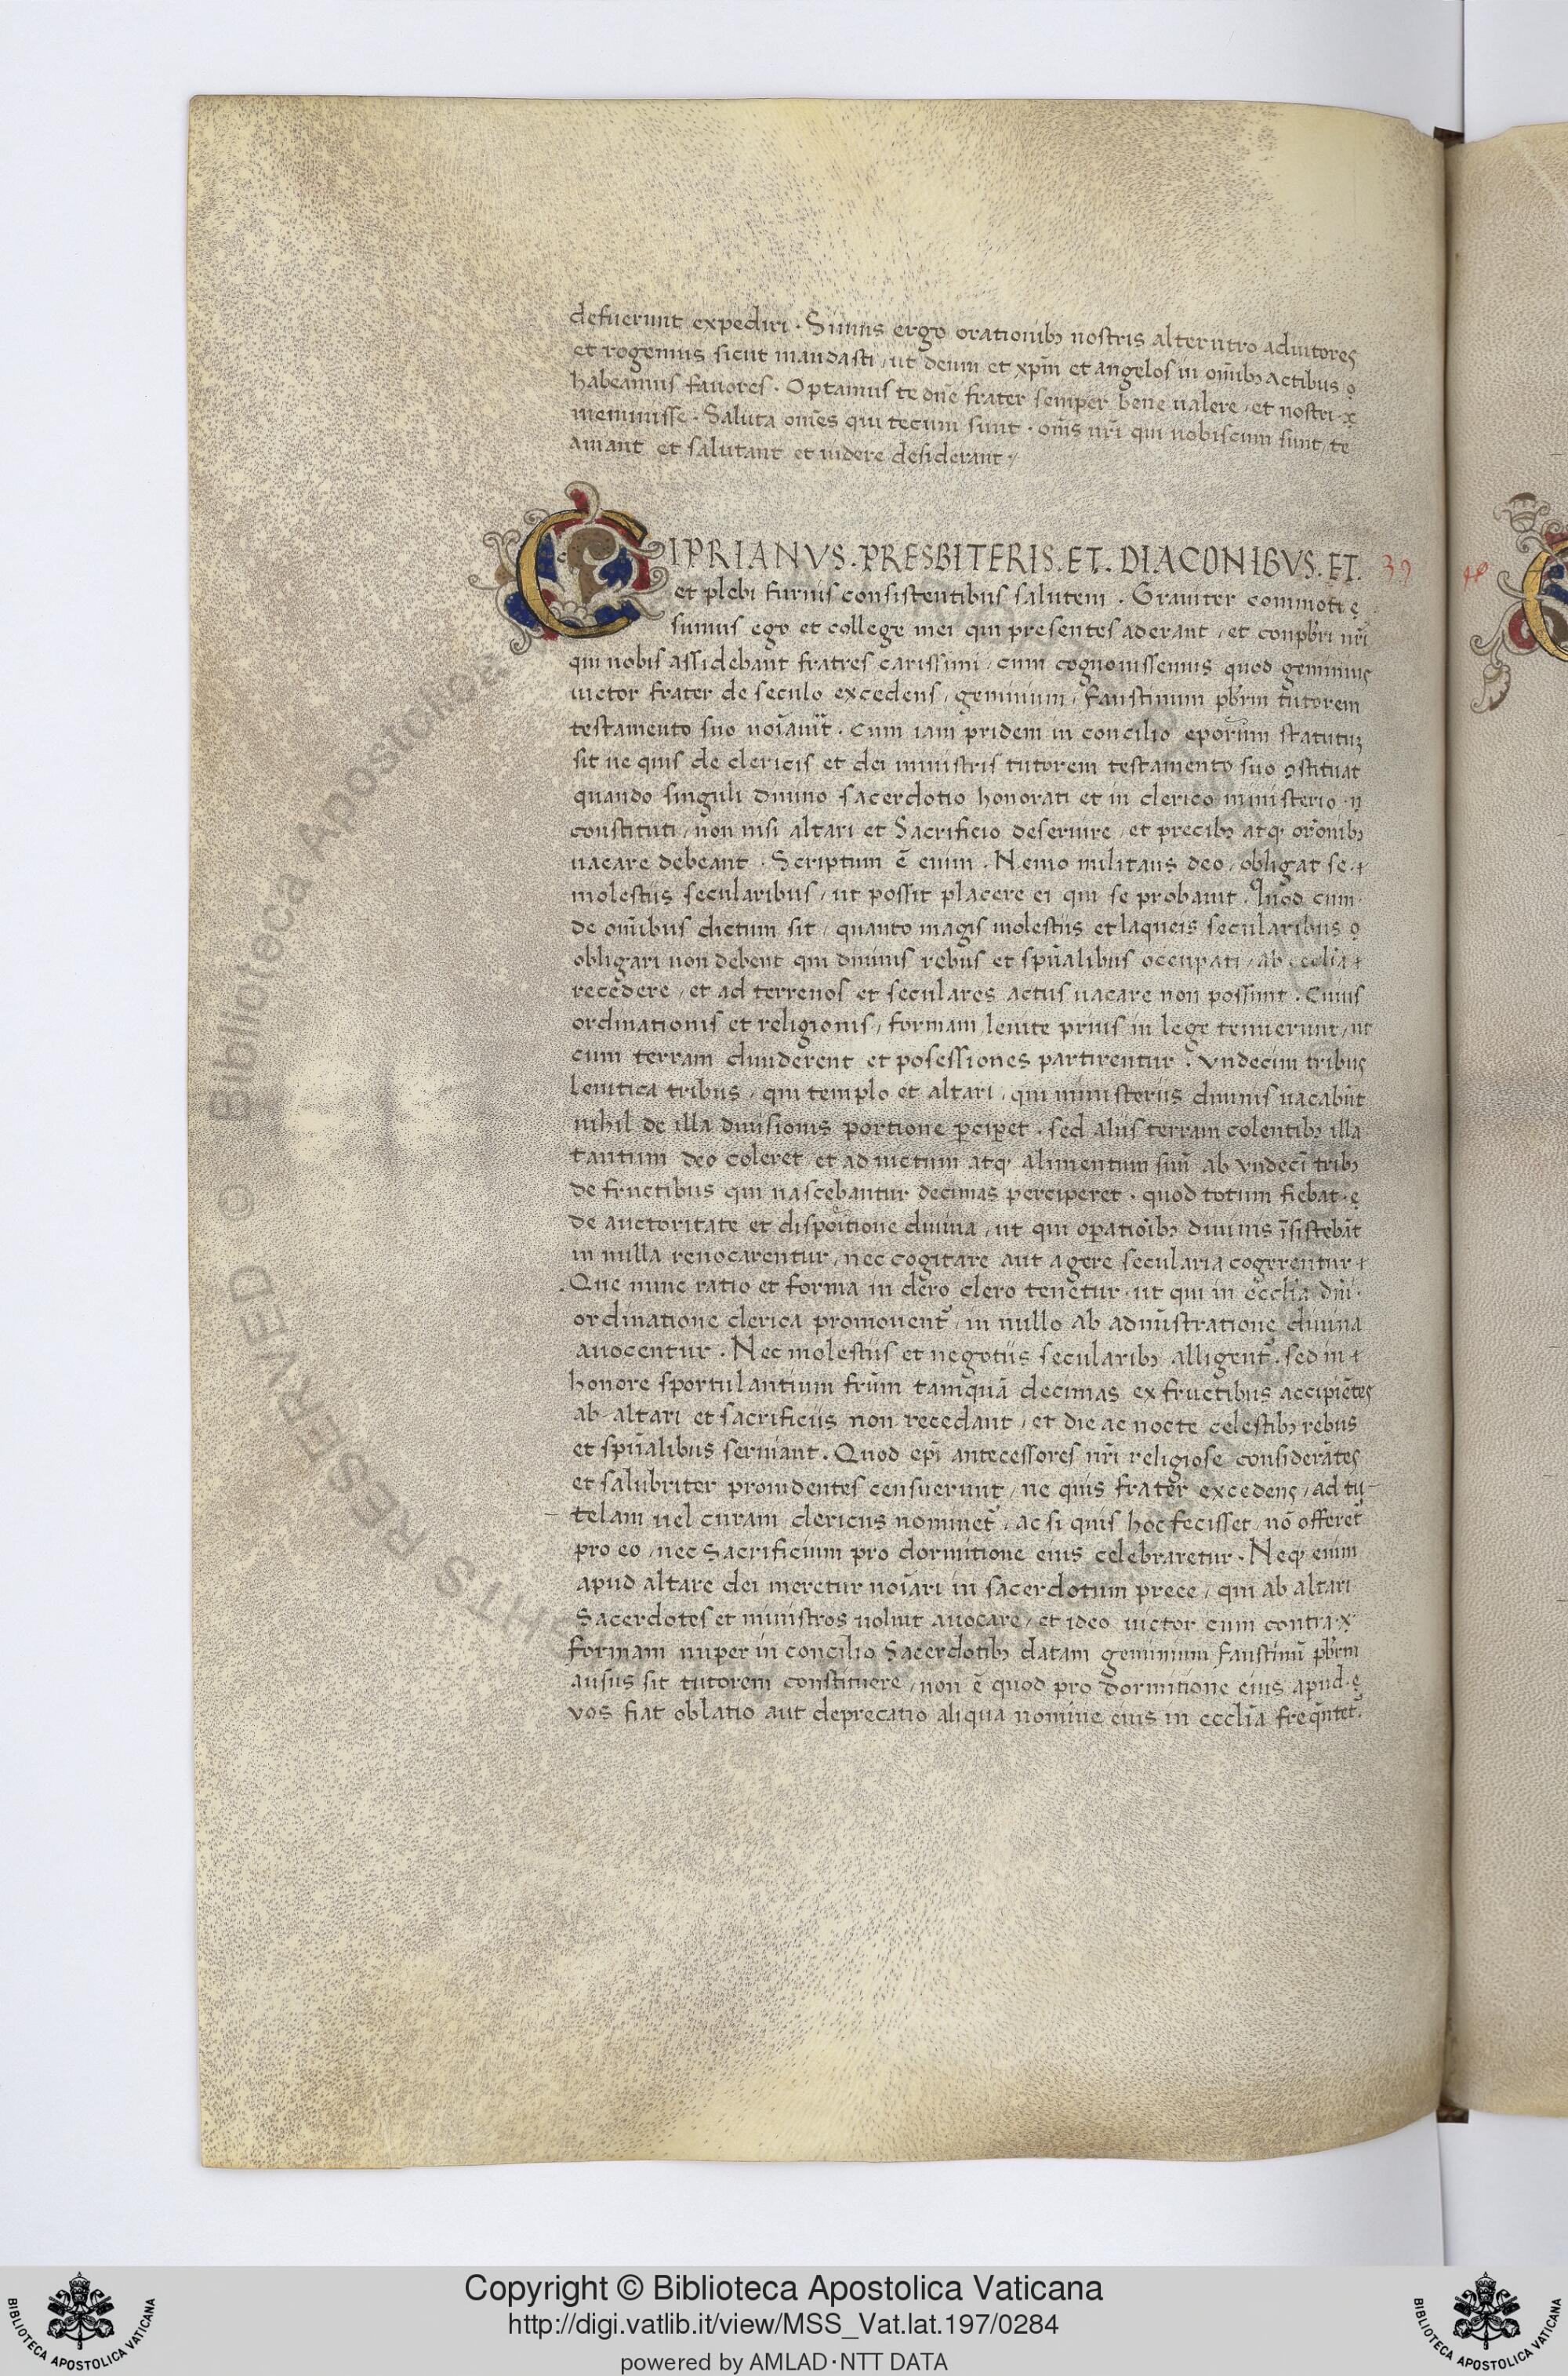 defuerunt expediri · Simus ergo orationibꝫ nostris alterutro adiutores
et rogemus sicut mandasti, ut deum et xp̄m et angelos in om̄ibꝫ actibus
habeamus fautores · Optamus te dn̄e frater semper bene ualere, et nostri
meminisse · Saluta om̄es qui tecum sunt · om̄s nr̄i qui nobiscum sunt, te
amant et salutant et uidere desiderant ·/
CIPRIANVS · PRESBITERIS · ET · DIACONIBVS · ET · 39
et plebi furnis consistentibus salutem · Grauiter commoti
sumus ego et collegę mei qui presentes aderant, et conpb̄ri nr̄i
qui nobis assidebant fratres carissimi, cum cognouissemus quod geminius
uictor frater de seculo excedens, geminium, Faustinum pb̄rm tutorem
testamento suo noīauīt · Cum iam pridem in concilio ep̄orum statutuꝫ
sit ne quis de clericis et dei ministris tutorem testamento suo ꝯstituat
quando singuli diuino sacerdotio honorati et in clerico ministerio
constituti, non nisi altari et Sacrificio deseruire, et precibꝫ atqꝫ or̄onibꝫ
uacare debeant · Scriptum ē enim · Nemo militans deo, obligat se
molestiis secularibus, ut possit placere ei qui se probauit · Quod cum
de om̄ibus dictum sit, quanto magis molestiis et laqueis secularibus
obligari non debent qui diuinis rebus et spūalibus occupati, ab ecclīa
recedere, et ad terrenos et seculares actus uacare non possunt · Cuius
ordinationis et religionis, formam leuite prius in lege tenuerunt, ut
cum terram diuiderent et posessiones partirentur · vndecim tribus
leuitica tribus, qui templo et altari, qui ministeriis diuinis uacabūt
nihil de illa diuisionis portione ꝑciꝑet · sed aliis terram colentibꝫ illa
tantum deo coleret, et ad uictum atqꝫ alimentum suū ab vndecī tribꝫ
de fructibus qui nascebantur decimas perciperet · quod totum fiebat
de auctoritate et dispoitione diuina, ut qui oꝑatiōibꝫ diuinis īsistebāt
in nulla reuocarentur, nec cogitare aut agere secularia cogerentur
Que nunc ratio et forma in clero clero tenetur · ut qui in ecclīa dn̄i
ordinatione clerica promouent᷑, in nullo ab admīstratione diuina
auocentur · Nec molestiis et negotiis secularibꝫ alligent᷑ · sed in
honore sportulantium fr̄um tamquā decimas ex fructibus accipiētes
ab altari et sacrificiis non recedant, et die ac nocte celestibꝫ rebus
et spūalibus seruiant · Quod ep̄i antecessores nr̄i religiose considerātes
et salubriter prouidentes censuerunt, ne quis frater excedens, ad tu-
telam uel curam clericus nominet᷑, ac si quis hoc fecisset, nō offeret᷑
pro eo, nec Sacrificium pro dormitione eius celebraretur · Neqꝫ enim
apud altare dei meretur noīari in sacerdotum prece, qui ab altari
Sacerdotes et ministros uoluit auocare, et ideo uictor cum contra
formam nuper in concilio Sacerdotibꝫ datam geminium faustinū pb̄rm
ausus sit tutorem constituere, non ē quod pro dormitione eius apud
vos fiat oblatio aut deprecatio aliqua nomine eius in ecclīa freq̄ntet᷑
© Biblioteca Apostolica
RIGHTS RESERVED
Copyright © Biblioteca Apostolica Vaticana
http://digi.vatlib.it/view/MSS_Vat.lat.197/0284
powered by AMLAD·NTT DATA
BIBLIOTECA APOSTOLICA VATICANA
BIBLIOTECA APOSTOLICA VATICANA